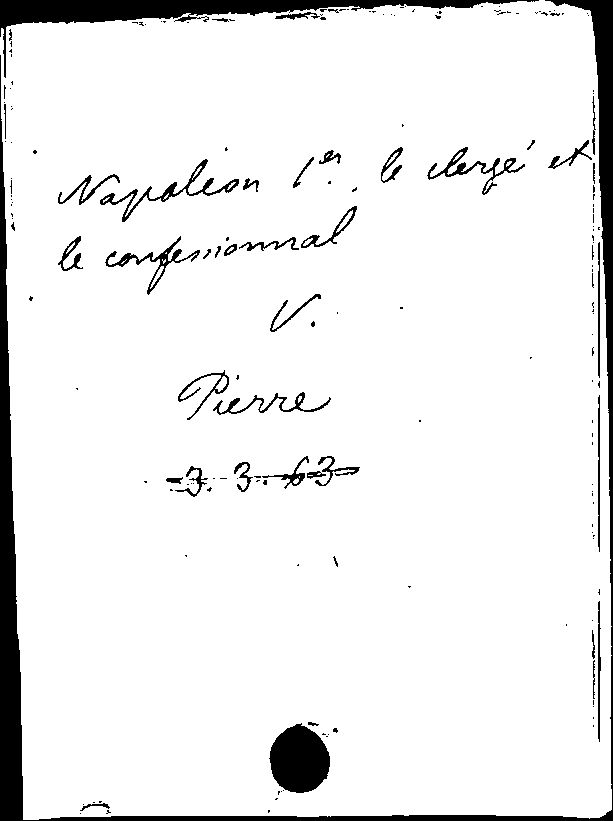 Napoléon 1er, le clergé et
le confessionnal
V.
Pierre
3.3.63